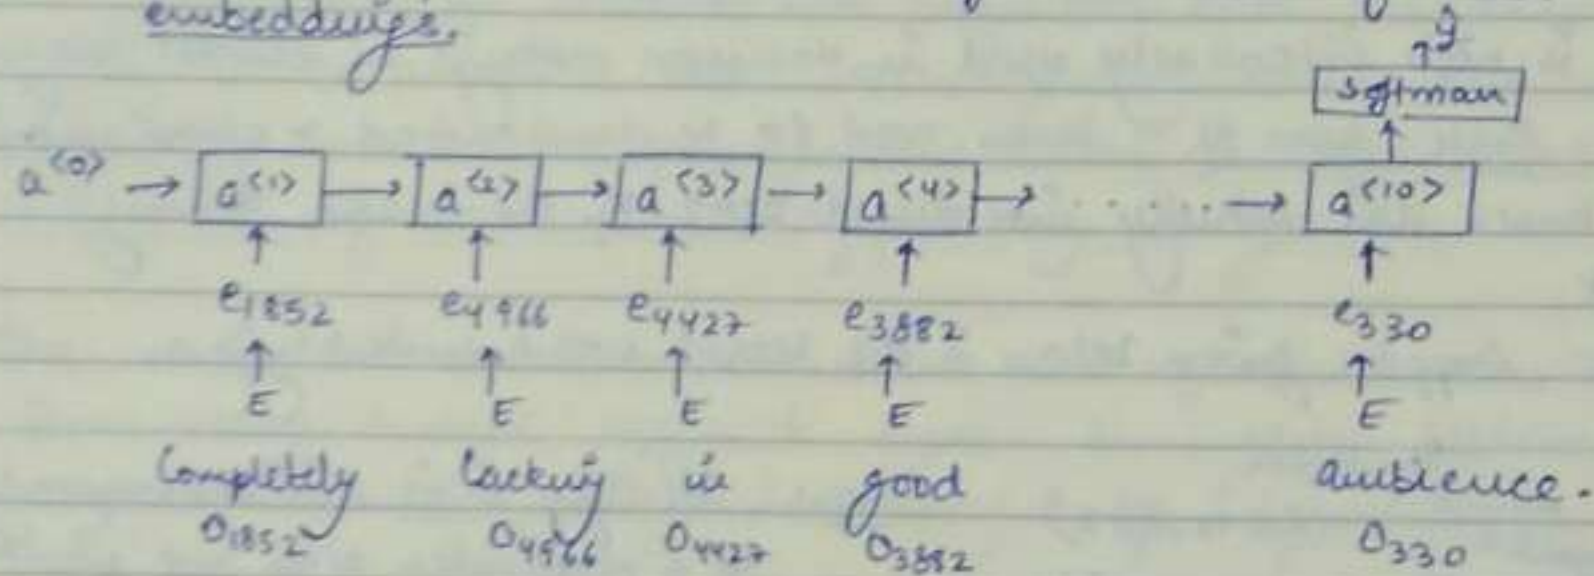 embeddings.
ŷ
softmax
a<0> → a<1> → a<2> → a<3> → a<4> → ..... → a<10>
e1852 e4966 e4427 e3882 e330
E E E E E
Completely lacking in good ambience.
O1852 O4966 O4427 O3882 O330